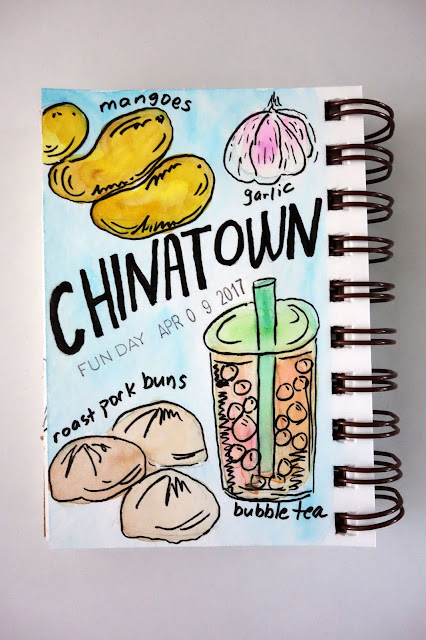 mangoes
garlic
CHINATOWN
FUN DAY APR 0 9 2017
roast pork buns
bubble tea